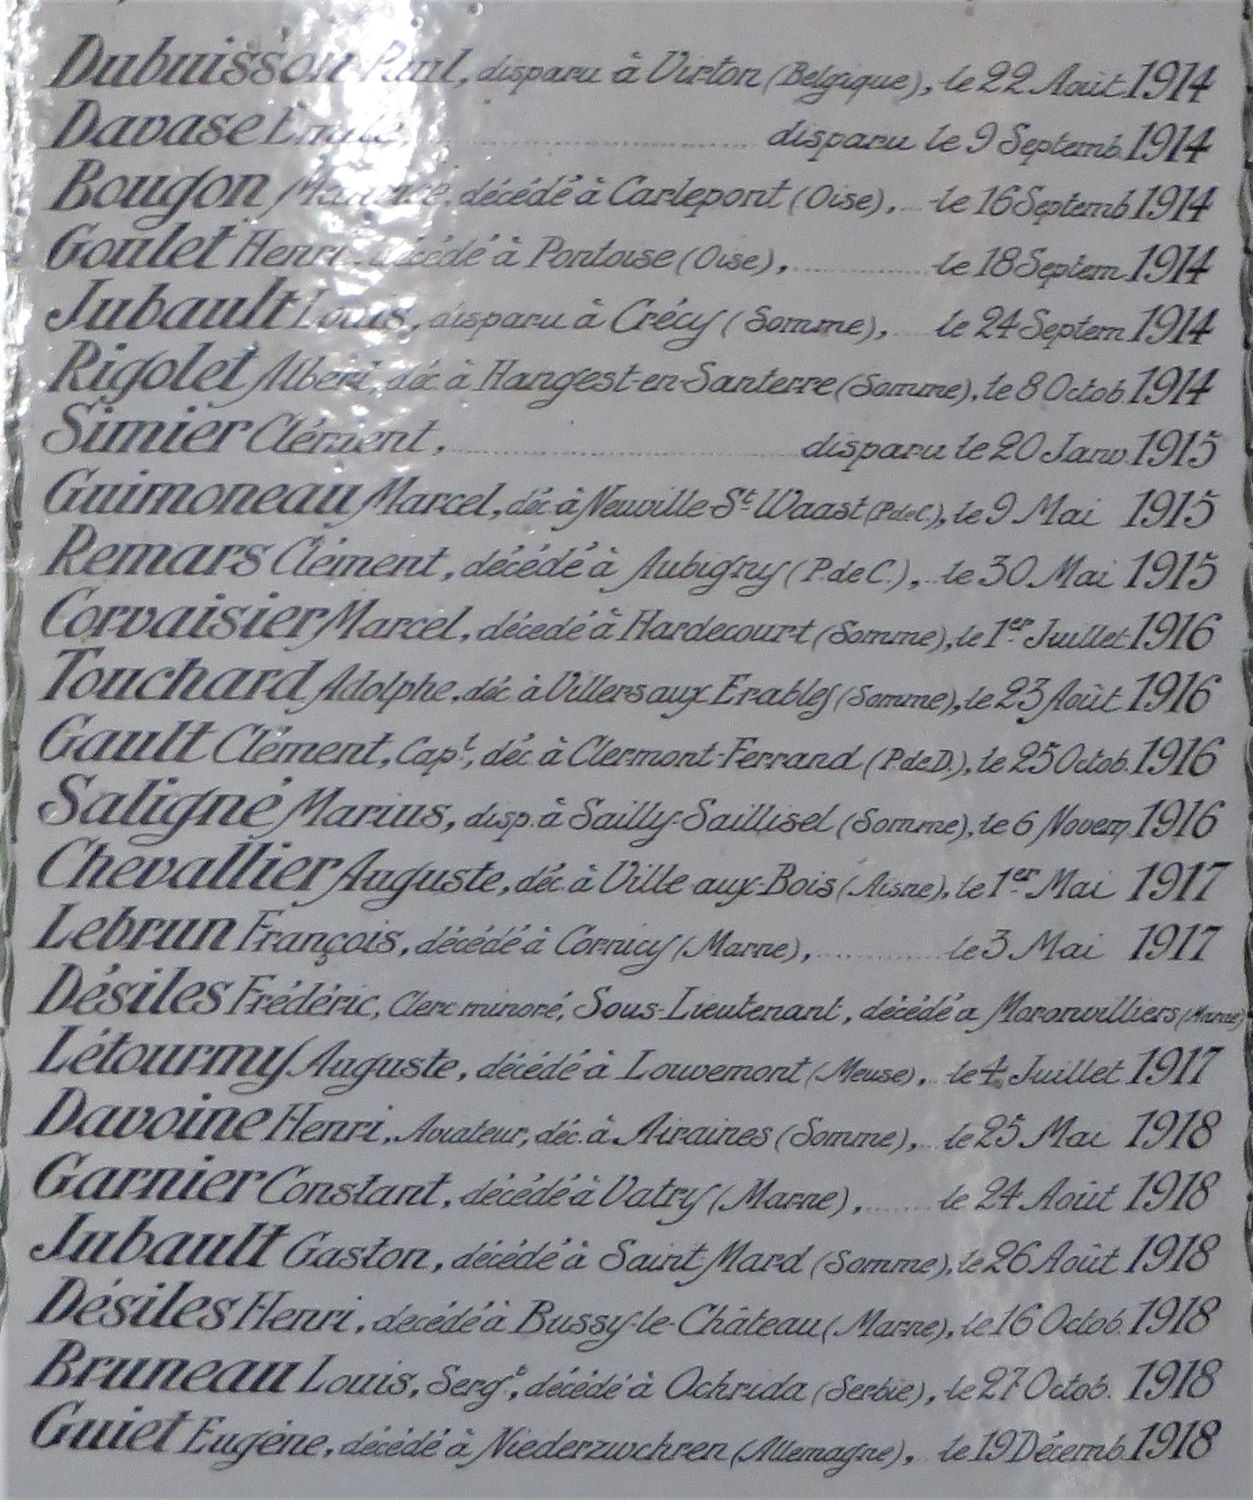 Dubuisson Paul, disparu à Virton (Belgique), le 22 Août 1914
Davase Emile, disparu le 9 Septemb. 1914
Bougon Maurice, décédé à Carlepont (Oise), le 16 Septemb. 1914
Goulet Henri, décédé à Pontoise (Oise), le 18 Septem. 1914
Jubault Louis, disparu à Crécy (Somme), le 24 Septem. 1914
Rigolet Albéric, déc. à Hangest-en-Santerre (Somme), le 8 Octob. 1914
Simier Clément, disparu le 20 Janv. 1915
Guimoneau Marcel, déc. à Neuville-St Waast (P.deC.), le 9 Mai 1915
Remars Clément, décédé à Aubigny (P.deC.), le 30 Mai 1915
Corvaisier Marcel, décedé à Hardecourt (Somme), le 1er Juillet 1916
Touchard Adolphe, déc. à Villers aux Erables (Somme), le 23 Août 1916
Gault Clément, Capt, déc. à Clermont-Ferrand (P.deD.), le 25 Octob. 1916
Saligné Marius, disp. à Sailly-Saillisel (Somme), le 6 Novem. 1916
Chevallier Auguste, déc. à Ville aux-Bois (Aisne), le 1er Mai 1917
Lebrun François, décédé à Cormicy (Marne), le 3 Mai 1917
Désiles Frédéric, Clerc minoré, Sous-Lieutenant, décédé a Moronvilliers (Marne)
Létourmy Auguste, décédé à Louvemont (Meuse), le 4 Juillet 1917
Davoine Henri, Aviateur, déc. à Airaines (Somme), le 25 Mai 1918
Garnier Constant, décédé à Vatry (Marne), le 24 Août 1918
Jubault Gaston, décédé à Saint Mard (Somme), le 26 Août 1918
Désiles Henri, decédé à Bussy-le-Château (Marne), le 16 Octob. 1918
Bruneau Louis, Sergt, décédé à Ochrida (Serbie), le 27 Octob. 1918
Guiet Eugène, décédé à Niederzwchren (Allemagne), le 19 Décemb. 1918